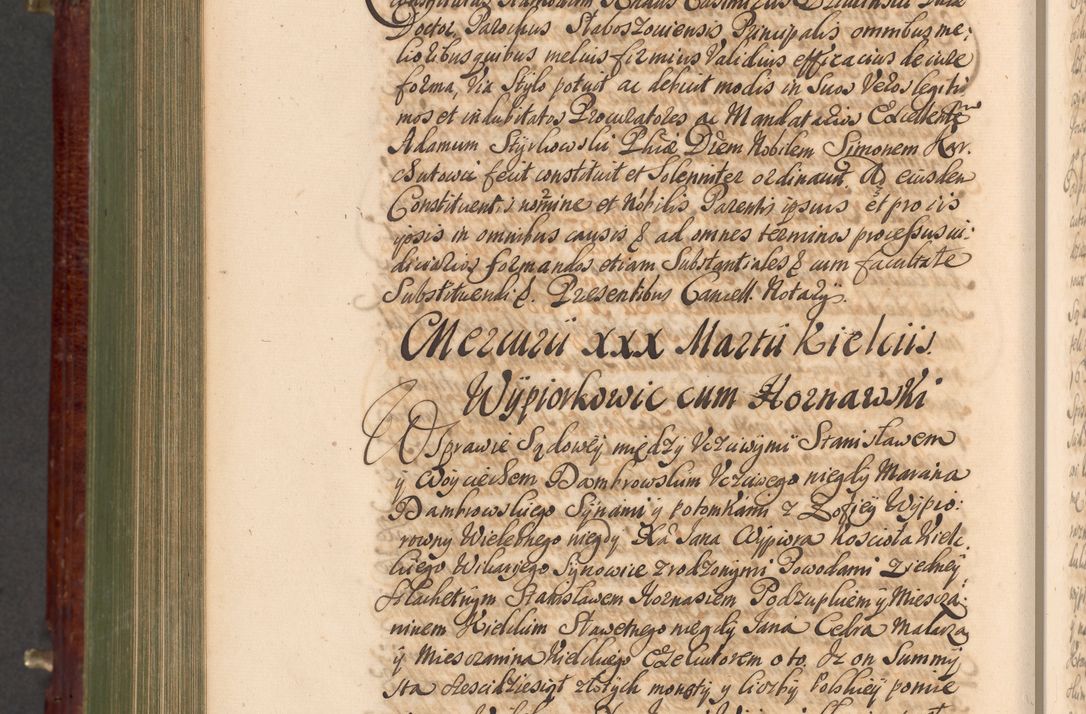 Doctor Parochus Slaboszoviensis Principalis omnibus me;
lioribus quibus melius firmius Validius efficacius de iure
forma, Via Stylo potuit ac debuit modis in Suos Veros legiti
mos et indubitatos Procuratores ac Mandatarios Excellentem
Adamum Styrkowski Phiæ Drem Nobilem Simonem Kar.
csutowic fecit constituit et Solenniter ordinavit. Ad eiusdem
Constituentis nomine et Nobilis Parentis ipsius et pro iis
ipsis in omnibus causis & ad omnes terminos processus iu:
diciarios formandos etiam Substantiales & cum facultate
Substituendi &. Presentibus Cancell. Notarÿ.
Mercurii XXX Martii Kielciis.
Wÿpiorkowic cum Hornawski
W Sprawie Sądoweÿ między Vczciwÿmi Stanisławem
ÿ Woÿciechem Dambrowskim Vczciwego niegdÿ Marcina
Dambrowskiego Sÿnami ÿ potomkami z Zofieÿ Wÿpio:
rowny Wielebnego niegdÿ Xa Jana Wÿpiora Kościoła Kielc
kiego Wikariego Sÿnowice zrodzonÿmi Powodami z iedneÿ
Szlachetnÿm Stanisławem Hornasiem Podzupkiem ÿ Miescza:
ninem Kieldkim Sławetnego niegdÿ Jana Cebra Malarza
ÿ Miesczanina Kielckiego Exekutorem o to. Iz on Summÿ
Sta szescidziesiąt złotÿch monetÿ y liczbÿ Polskieÿ pomie